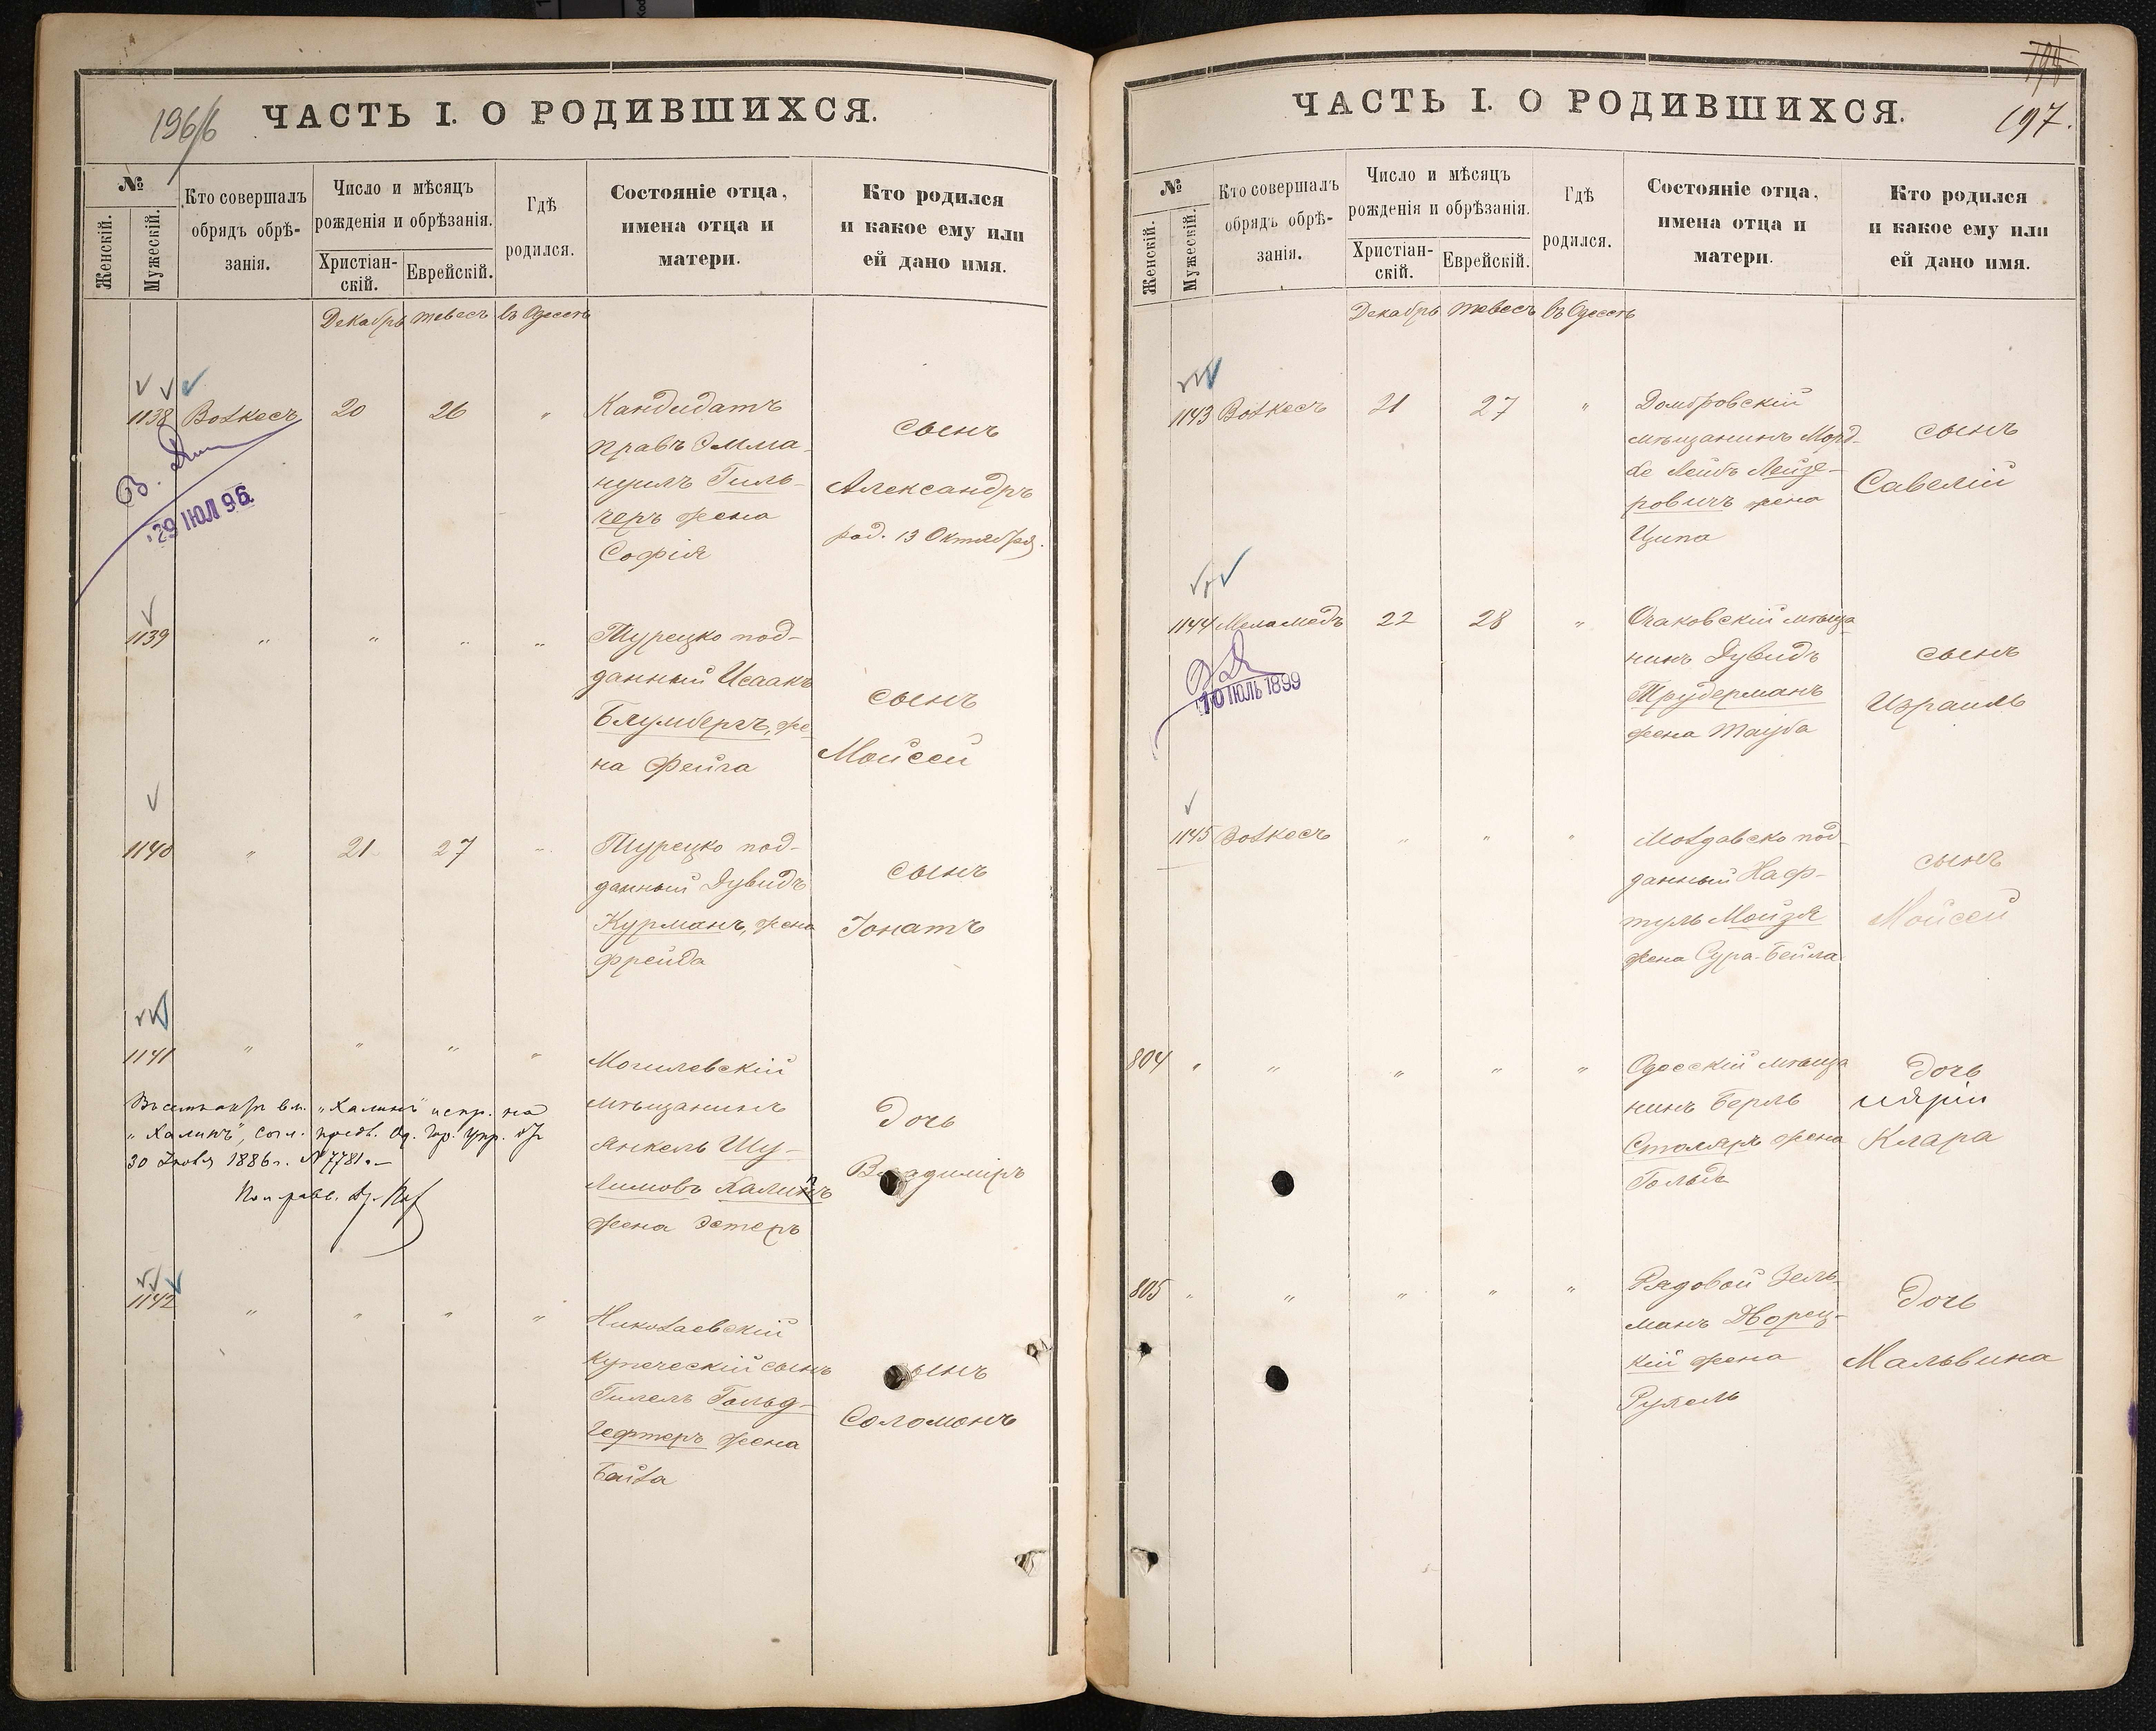 196/б
ЧАСТЬ I. О РОДИВШИХСЯ.
№
Женскій.
Мужескій.
Кто совершалъ
обрядъ обрѣ-
занія.
Число и мѣсяцъ
рожденія и обрѣзанія.
Христіан-
скій.
Еврейскій.
Гдѣ
родился.
Состояніе отца,
имена отца и
матери.
Кто родился
и какое ему или
ей дано имя.
Декабрь тевесъ въ Одессѣ
1138 Волкесъ 20 26 "
Кандидатъ
правъ Эмма-
нуилъ Гиль-
черъ жена
Софія
сынъ
Александръ
род. 13 Октября.
29 ІЮЛ 96
1139 " " " "
Турецко под-
данный Исаакъ
Блумбергъ, же
на Фейга
сынъ
Мойсей
1140 " 21 27 "
Турецко под-
данный Дувидъ
Курманъ, жена
Фрейда
сынъ
Іонатъ
1141 " " " "
Могилевскій
мѣщанинъ
Янкель Шу-
лимовъ Калинъ
жена Эстеръ
дочь
Владиміръ
испр. на
"Калинъ", согл. предв. Од. Гор. Упр. от
30 1886 г. № 7781.—
1142 " " " "
Николаевскій
купеческій сынъ
Гилель Гольд-
гефтеръ жена
Бейла
сынъ
Соломонъ
197.
ЧАСТЬ I. О РОДИВШИХСЯ.
№
Женскій.
Мужескій.
Кто совершалъ
обрядъ обрѣ-
занія.
Число и мѣсяцъ
рожденія и обрѣзанія.
Христіан-
скій.
Еврейскій.
Гдѣ
родился.
Состояніе отца,
имена отца и
матери.
Кто родился
и какое ему или
ей дано имя.
Декабрь тевесъ въ Одессѣ
1143 Волкесъ 21 27 "
Домбровскій
мѣщанинъ Морд-
ке Лейбъ Лейзе-
ровичъ жена
Ципа
сынъ
Савелій
1144 Меламедъ 22 28 "
Очаковскій мѣща
нинъ Дувидъ
Трудерманъ
жена Тауба
сынъ
Израиль
10 ІЮЛЬ 1899
1145 Волкесъ " " "
Молдавско под-
данный Наф-
туль Мойзя
жена Сура-Бейла
сынъ
Мойсей
804 " " " " "
Одесскій мѣща
нинъ Берль
Столяръ жена
Гольда
дочь
Клара
805 " " " " "
Рядовой Зель-
манъ Дворец-
кій жена
Рухель
дочь
Мальвина